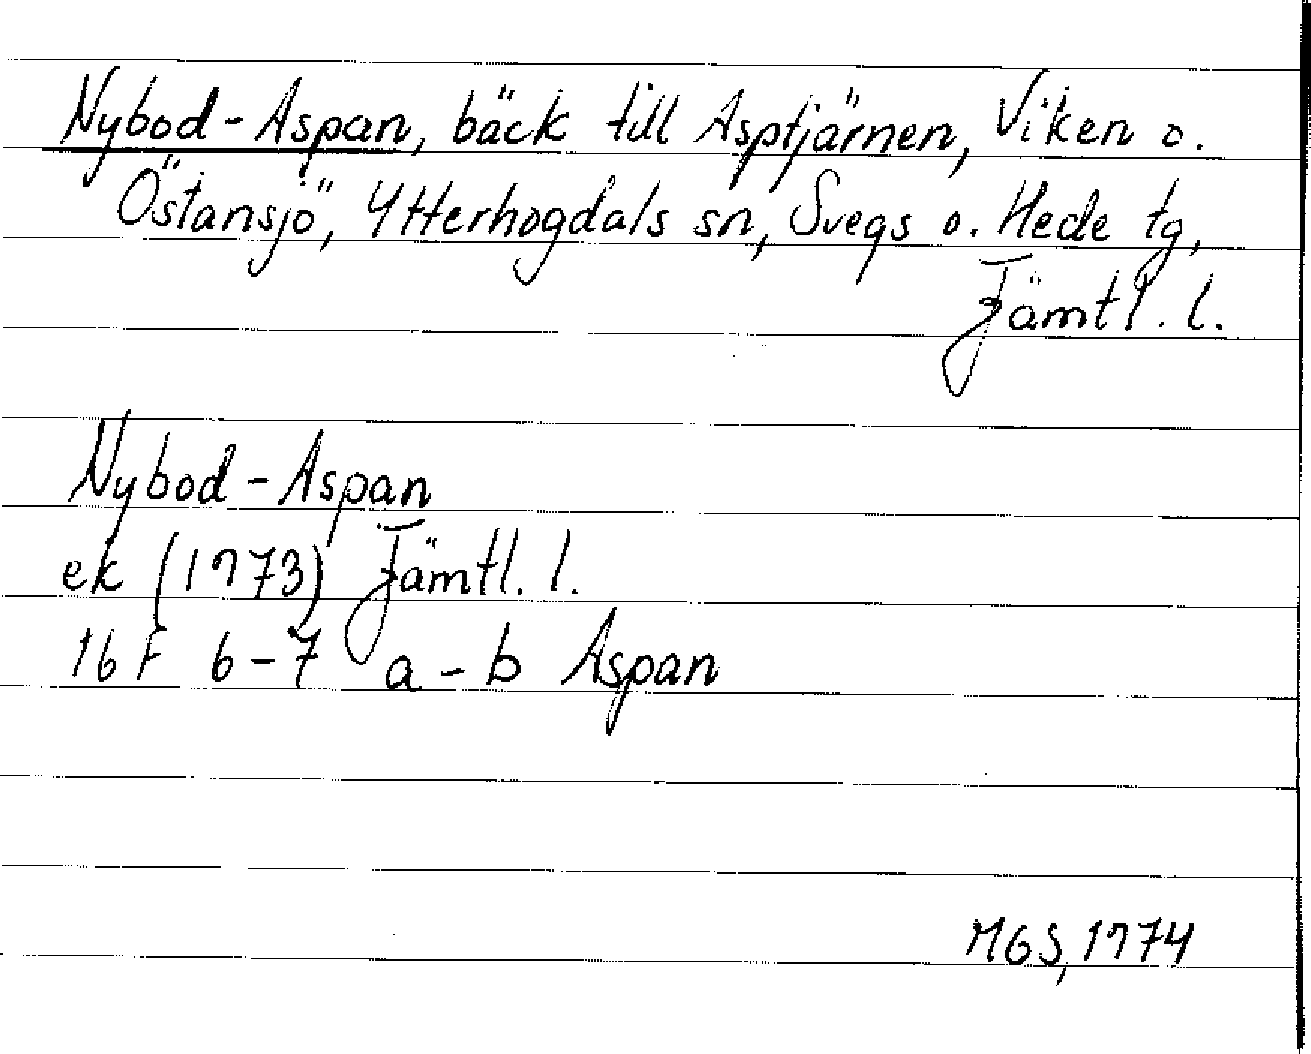 Nybod-Aspan, bäck till Asptjärnen, Viken o.
Östansjö, Ytterhogdals sn, Svegs o. Hede tg,
Jämtl. l.
Nybod-Aspan
ek (1973) Jämtl. l.
16F 6-7 a-b Aspan
MGS, 1974